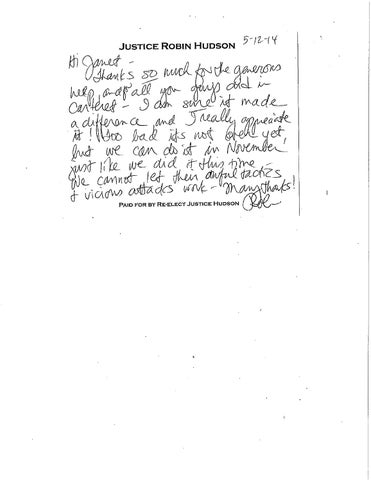 JUSTICE ROBIN HUDSON 5-12-14
Hi Janet -
Thanks so much for the generous
help and of all you guys did in
Carteret - I am sure it made
a difference and I really appreciate
it! Too bad it's not over yet,
but we can do it in November,
just like we did it this time -
We cannot let their awful tactics
& vicious attacks work - Many thanks!
PAID FOR BY RE-ELECT JUSTICE HUDSON